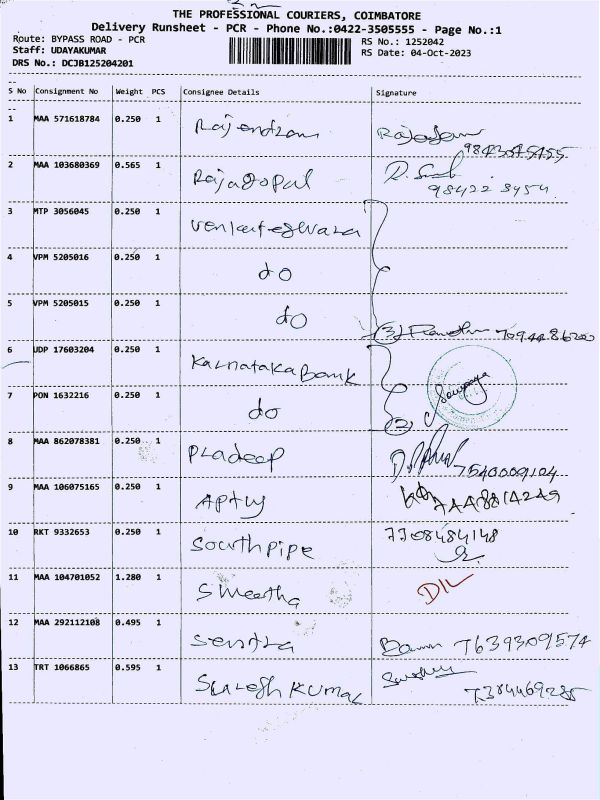 THE PROFESSIONAL COURIERS, COIMBATORE
Delivery Runsheet - PCR - Phone No.:0422-3505555 - Page No.:1
Route: BYPASS ROAD - PCR
RS No.: 1252042
Staff: UDAYAKUMAR
RS Date: 04-Oct-2023
DRS No.: DCJB125204201
S No Consignment No Weight PCS Consignee Details Signature
1 MAA 571618784 0.250 1 Rajendran
9843045455
2 MAA 103680369 0.565 1 Rajagopal
98422 3454
3 MTP 3056045 0.250 1 Venkateshwara
4 VPM 5205016 0.250 1 do
5 VPM 5205015 0.250 1 do
(3) 7094486200
6 UDP 17603204 0.250 1 Karnataka Bank
7 PON 1632216 0.250 1 do
(2)
8 MAA 862078381 0.250 1 Pradeep
7540009104
9 MAA 106075165 0.250 1
10 RKT 9332653 0.250 1 South pipe 7708484148
11 MAA 104701052 1.280 1 Smeetha DIL
12 MAA 292112108 0.495 1 7639309574
13 TRT 1066865 0.595 1 Suresh Kumar
7384469285